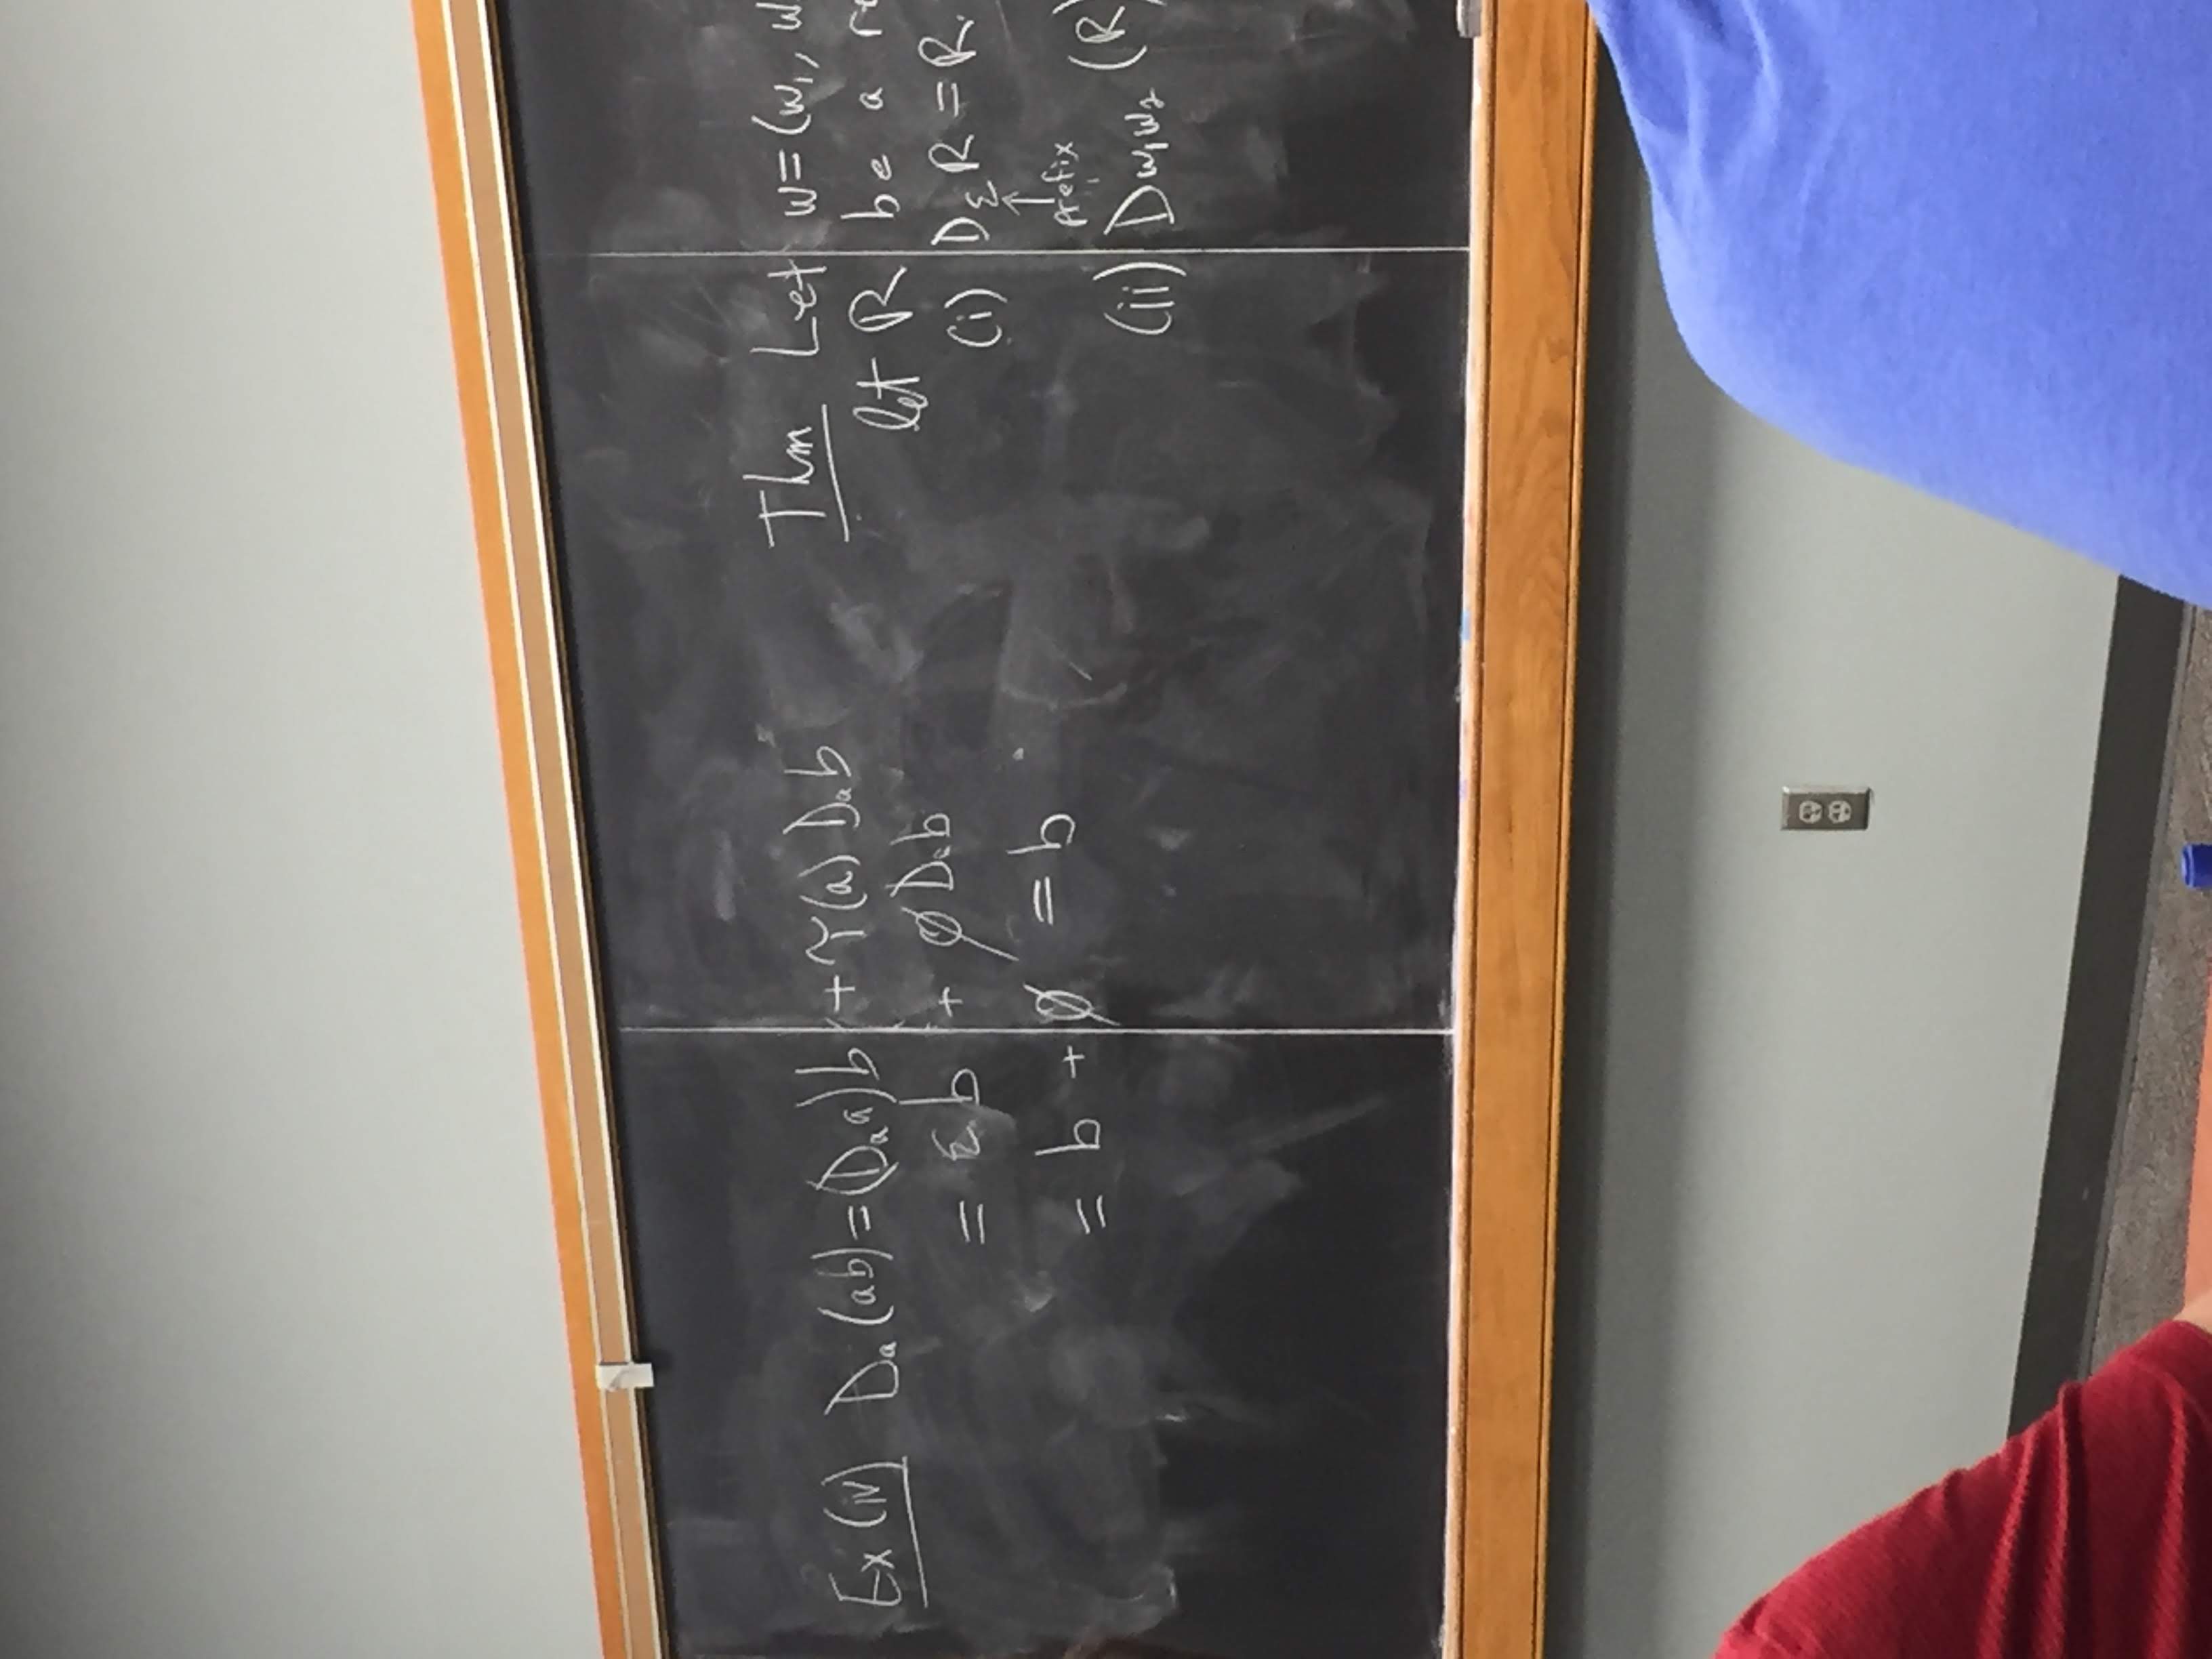 Ex (iv) Dₐ(ab) = (Dₐa)b + γ(a) Dₐb
= εb + ∅Dₐb
= b + ∅ = b
Thm Let w = (w₁, w
let R be a re
(i) D_ε R = R.
↑
prefix
(ii) D_w₁w₂ (R)